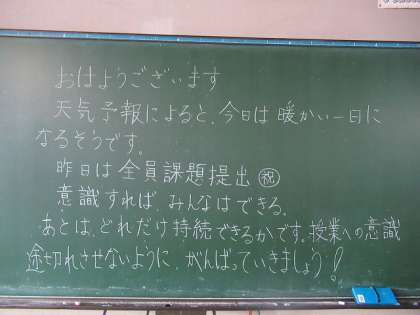 おはようございます
天気予報によると、今日は暖かい一日に
なるそうです。
昨日は全員課題提出㊗
意識すれば、みんなはできる。
あとは、どれだけ持続できるかです。授業への意識
途切れさせないように、がんばっていきましょう!